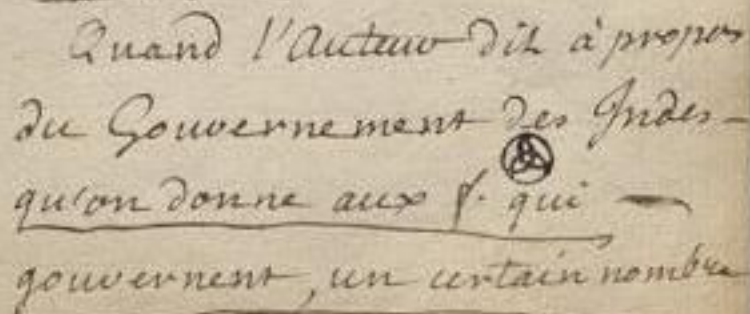 Quand l'Auteur dit à propos
du Gouvernement des Indes
qu'on donne aux f. qui
gouvernent, un certain nombre